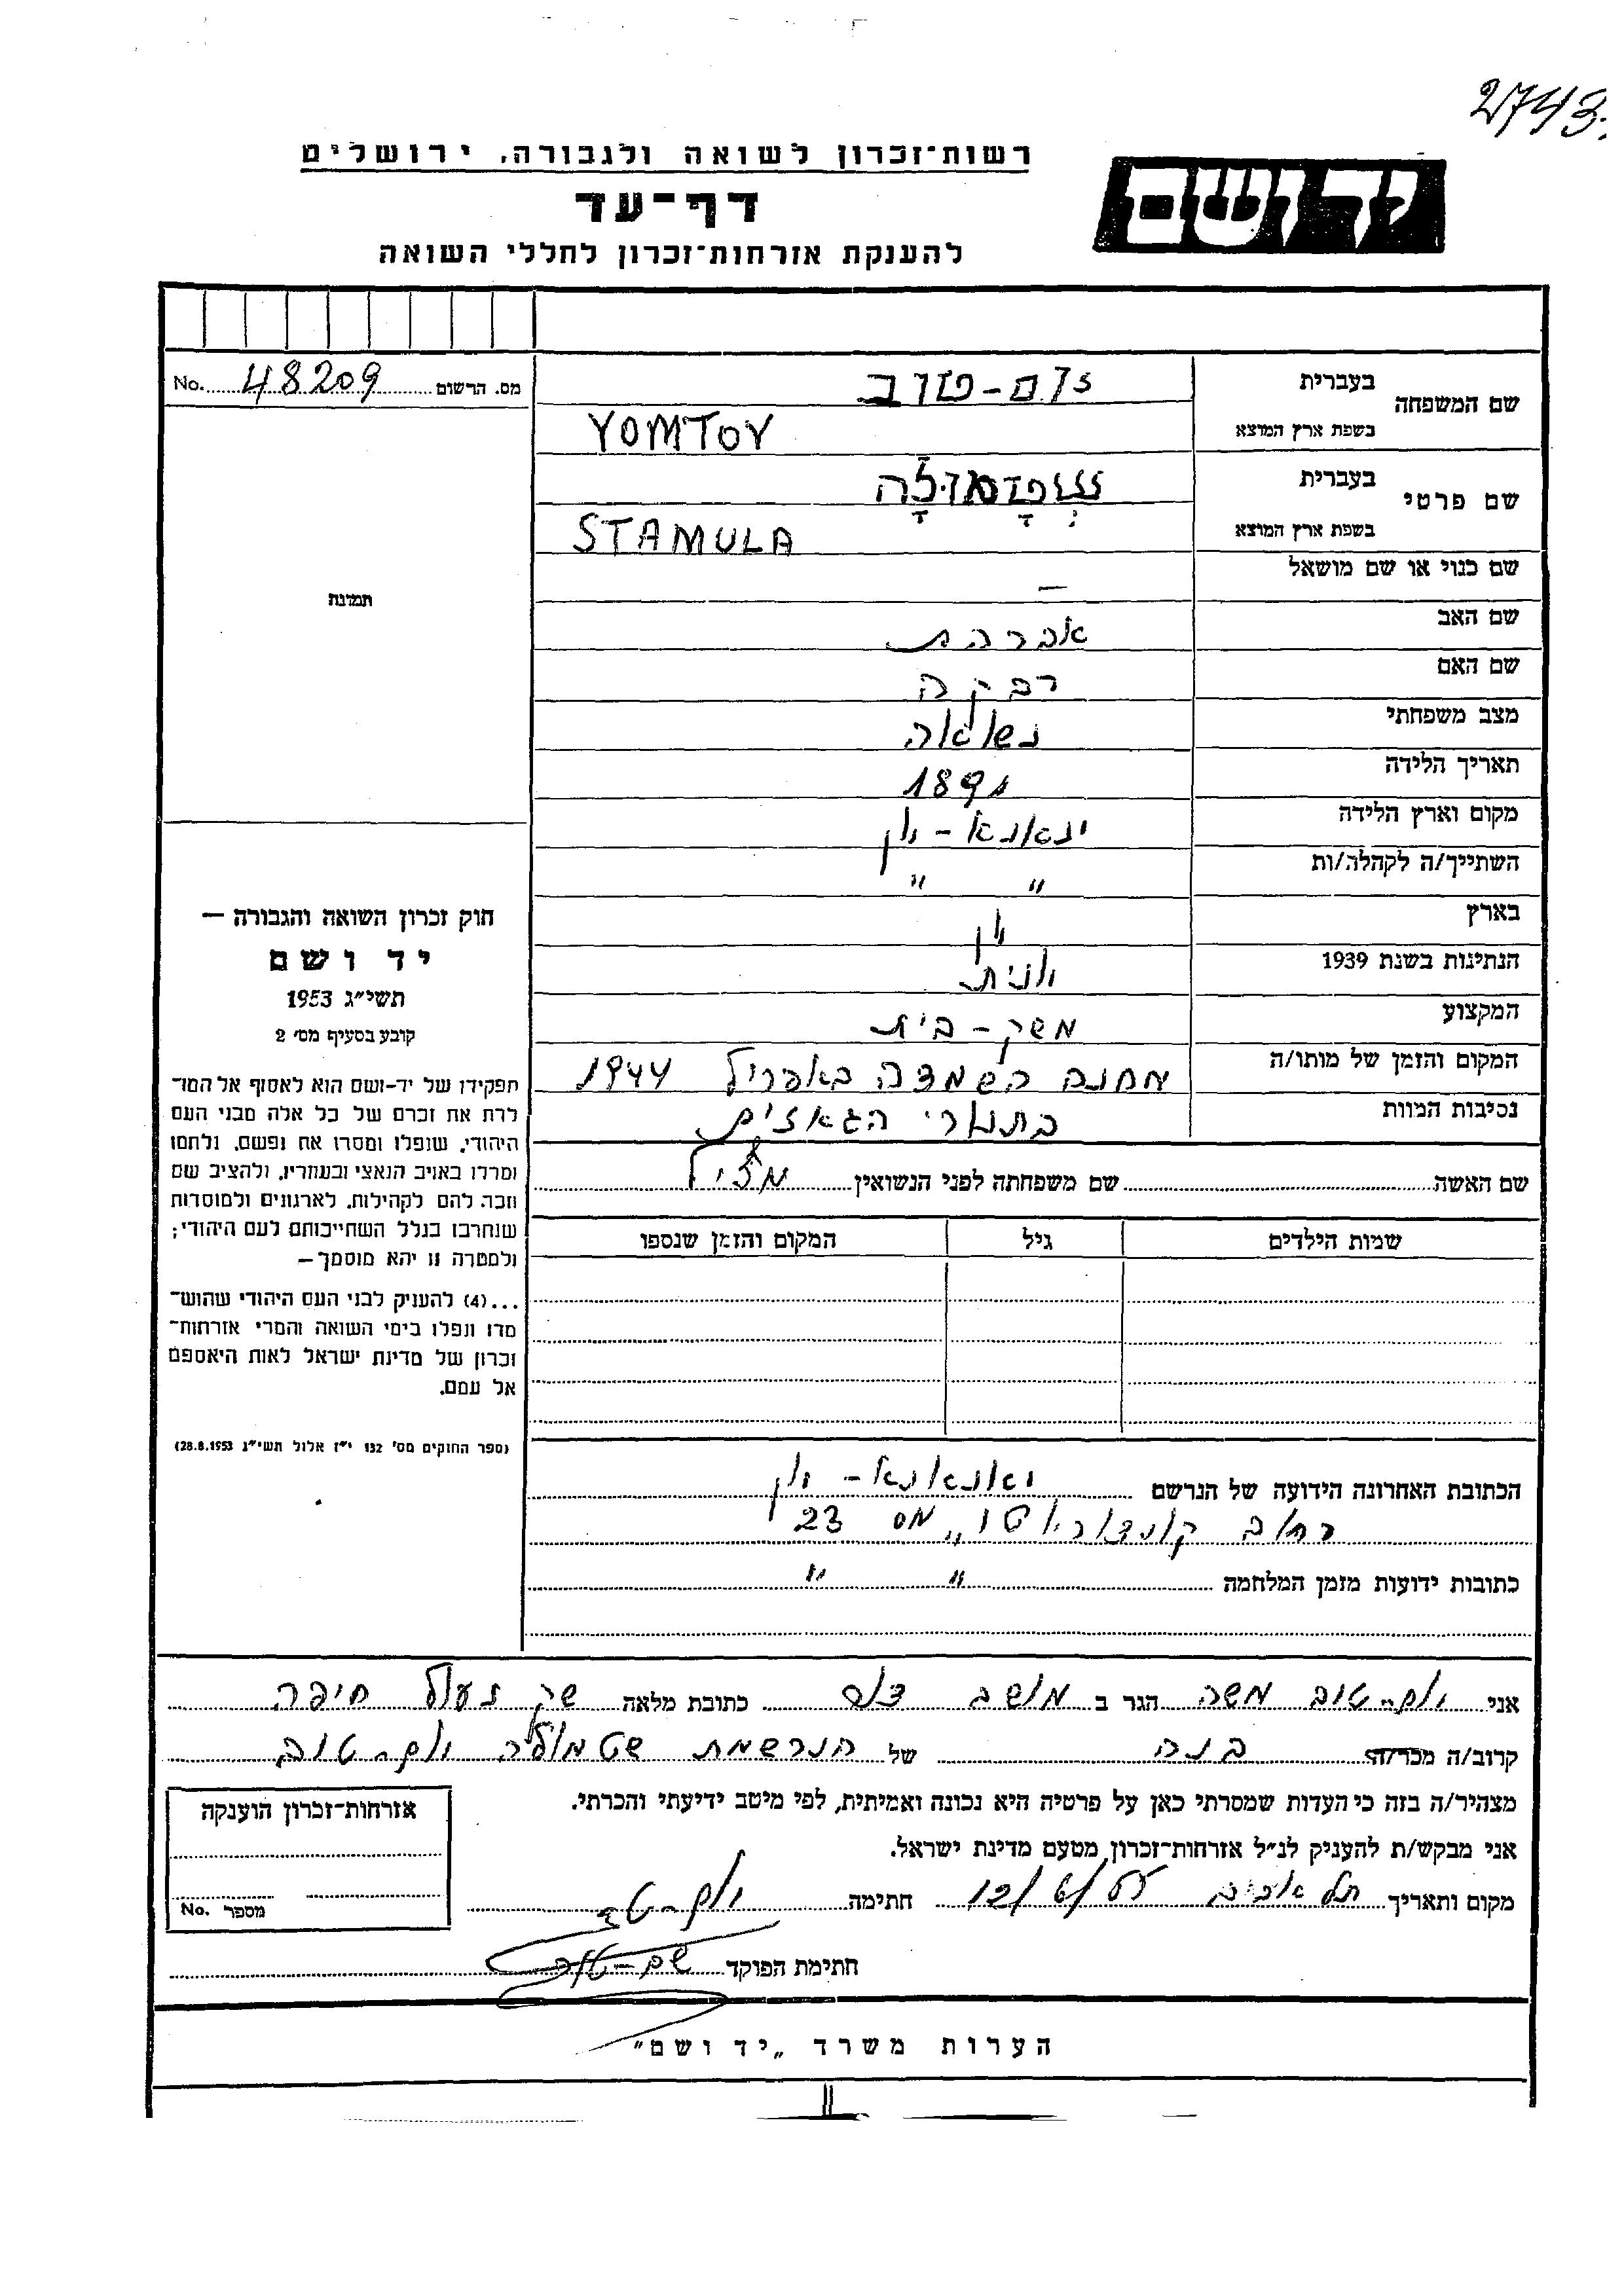 2743.
רשות־זכרון לשואה ולגבורה, ירושלים
יד ושם
דף־עד
להענקת אזרחות־זכרון לחללי השואה
מס. הרשום 48209 No.
שם המשפחה
בעברית יום-טוב
בשפת ארץ המוצא YOMTOV
שם פרטי
בעברית שְׂטָמוּלָה
בשפת ארץ המוצא STAMULA
שם כנוי או שם מושאל —
שם האב אברהם
שם האם רבקה
מצב משפחתי נשואה
תאריך הלידה 1891
מקום וארץ הלידה יואנינא - יון
השתייך/ה לקהלה/ות " "
בארץ יון
הנתינות בשנת 1939 יונית
המקצוע משק - בית
המקום והזמן של מותו/ה מחנה השמדה באפריל 1944
נסיבות המוות בתנורי הגאזים
שם האשה שם משפחתה לפני הנשואין
שמות הילדים גיל המקום והזמן שנספו
תמונה
חוק זכרון השואה והגבורה —
יד ושם
תשי״ג 1953
קובע בסעיף מס׳ 2
תפקידו של יד-ושם הוא לאסוף אל המו־
לדת את זכרם של כל אלה מבני העם
היהודי, שנפלו ומסרו את נפשם, נלחמו
ומרדו באויב הנאצי ובעוזריו, ולהציב שם
וזכר להם לקהילות, לארגונים ולמוסדות
שנחרבו בגלל השתייכותם לעם היהודי;
ולמטרה זו יהא מוסמך —
...(4) להעניק לבני העם היהודי שהוש־
מדו ונפלו בימי השואה והמרי אזרחות־
זכרון של מדינת ישראל לאות היאספם
אל עמם.
(ספר החוקים מס׳ 132 י״ז אלול תשי״ג 28.8.1953)
הכתובת האחרונה הידועה של הנרשם יואנינא - יון
רחוב מס 23
כתובות ידועות מזמן המלחמה " "
אני יום-טוב משה הגר ב מושב כתובת מלאה חיפה
קרוב/ה מכר/ה בנה של הנרשמת שטמולה יום-טוב
מצהיר/ה בזה כי העדות שמסרתי כאן על פרטיה היא נכונה ואמיתית, לפי מיטב ידיעתי והכרתי.
אני מבקש/ת להעניק לנ״ל אזרחות־זכרון מטעם מדינת ישראל.
מקום ותאריך תל אביב 12/6/55 חתימה יום-טוב
חתימת הפוקד שם-טוב
אזרחות־זכרון הוענקה
מספר No.
הערות משרד „יד ושם״